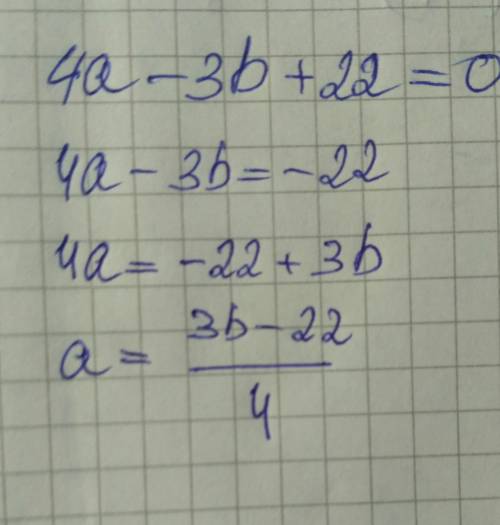 4a - 3b + 22 = 0
4a - 3b = -22
4a = -22 + 3b
a = \frac{3b - 22}{4}